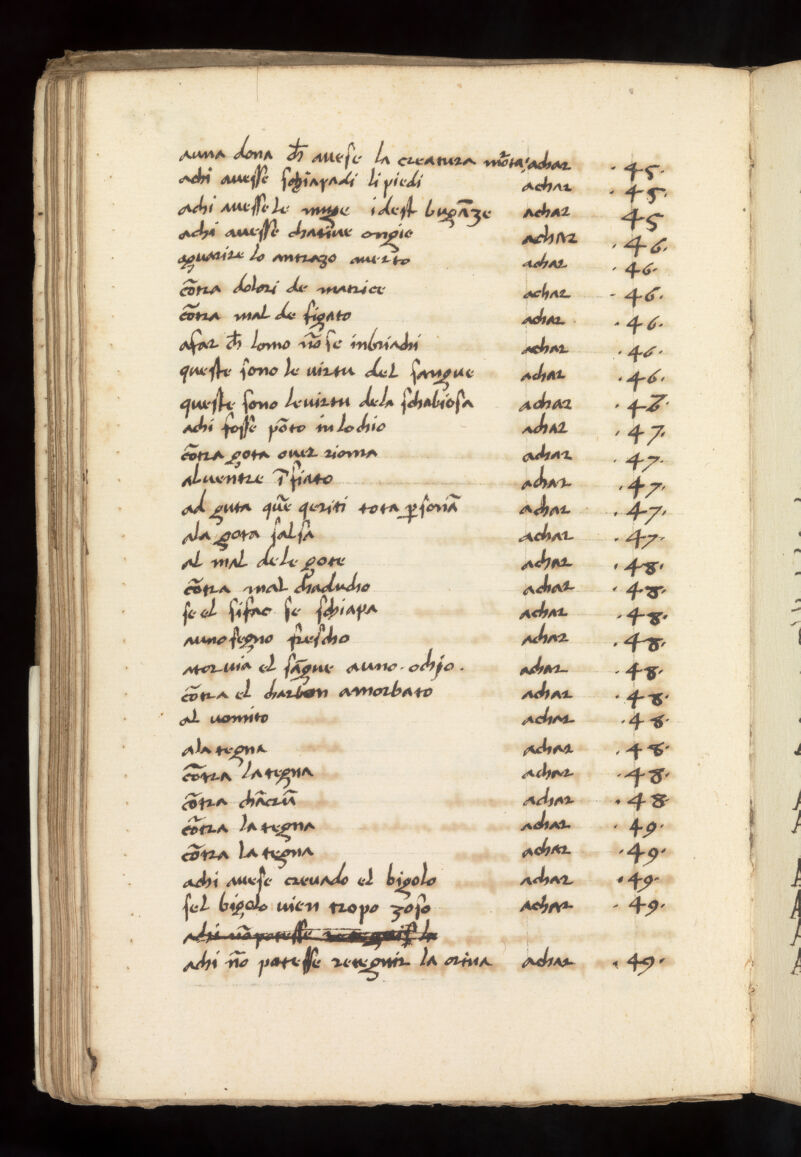 auna dona ch̄ auese la creatura mōrta: achar · 45 ·
achi auesse schiapadi li piedi achar · 45 ·
achi auesse le muge idest bugāze achar 45
achi auesse chatiue ongie achar · 46 ·
aguarire lo antrazo auerto achar · 46 ·
cōtra dolori de matrice achar · 46 ·
cōtra mal de figato achar · 46 ·
afar ch̄ lomo nō se inbriachi achar · 46 ·
queste sono le uirtu del sangue achar · 46 ·
queste sono leuirtu dela schabiosa achar
achi fosse pōto in lochio achar · 47 ·
cōtra gota ouer rioma achar · 47 ·
aluentre īfiato achar · 47 ·
ad guta quē qeriti tota ꝑsonā achar · 47 ·
ala gota salsa achar · 47 ·
al mal dele gote achar · 48 ·
cōtra mal chaducho achar · 48 ·
se el sifac se schiapa achar · 48 ·
auno segno frescho achar · 48 ·
ator uia el sāgue auno · ochjo · achar · 48 ·
cōtra el charbon amorbato achar · 48 ·
al uomito achar · 48 ·
ala tegna achar · 48 ·
cōtra la tegna achar · 48 ·
cōtra chācrū achar · 48
cōtra la tegna achar · 49 ·
cōtra la tegna achar · 49 ·
achi auese creuado el bigolo achar · 49 ·
sel bigolo uien tropo zoso achar · 49 ·
achi nō potesse la
achi nō potesse retegnir la orina achar · 49 ·